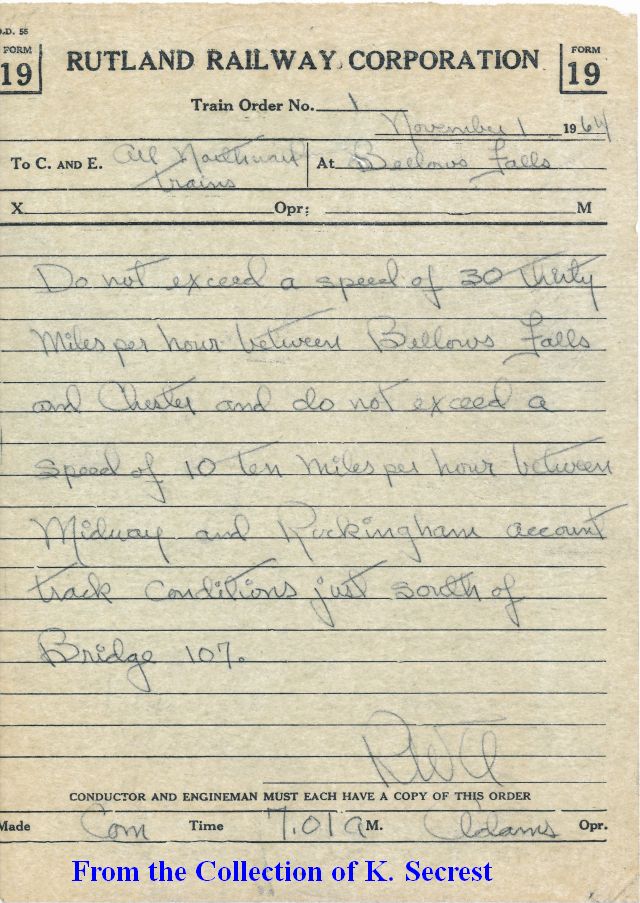 O.D. 55
FORM 19
RUTLAND RAILWAY CORPORATION
FORM 19
Train Order No. 1
November 1 1964
To C. AND E. All Northward trains
At Bellows Falls
X Opr; M
Do not exceed a speed of 30 thirty
Miles per hour between Bellows Falls
and Chester and do not exceed a
speed of 10 ten Miles per hour between
Midway and Rockingham account
track conditions just south of
Bridge 107.
CONDUCTOR AND ENGINEMAN MUST EACH HAVE A COPY OF THIS ORDER
Made Com Time 7.01 A M. Adams Opr.
From the Collection of K. Secrest